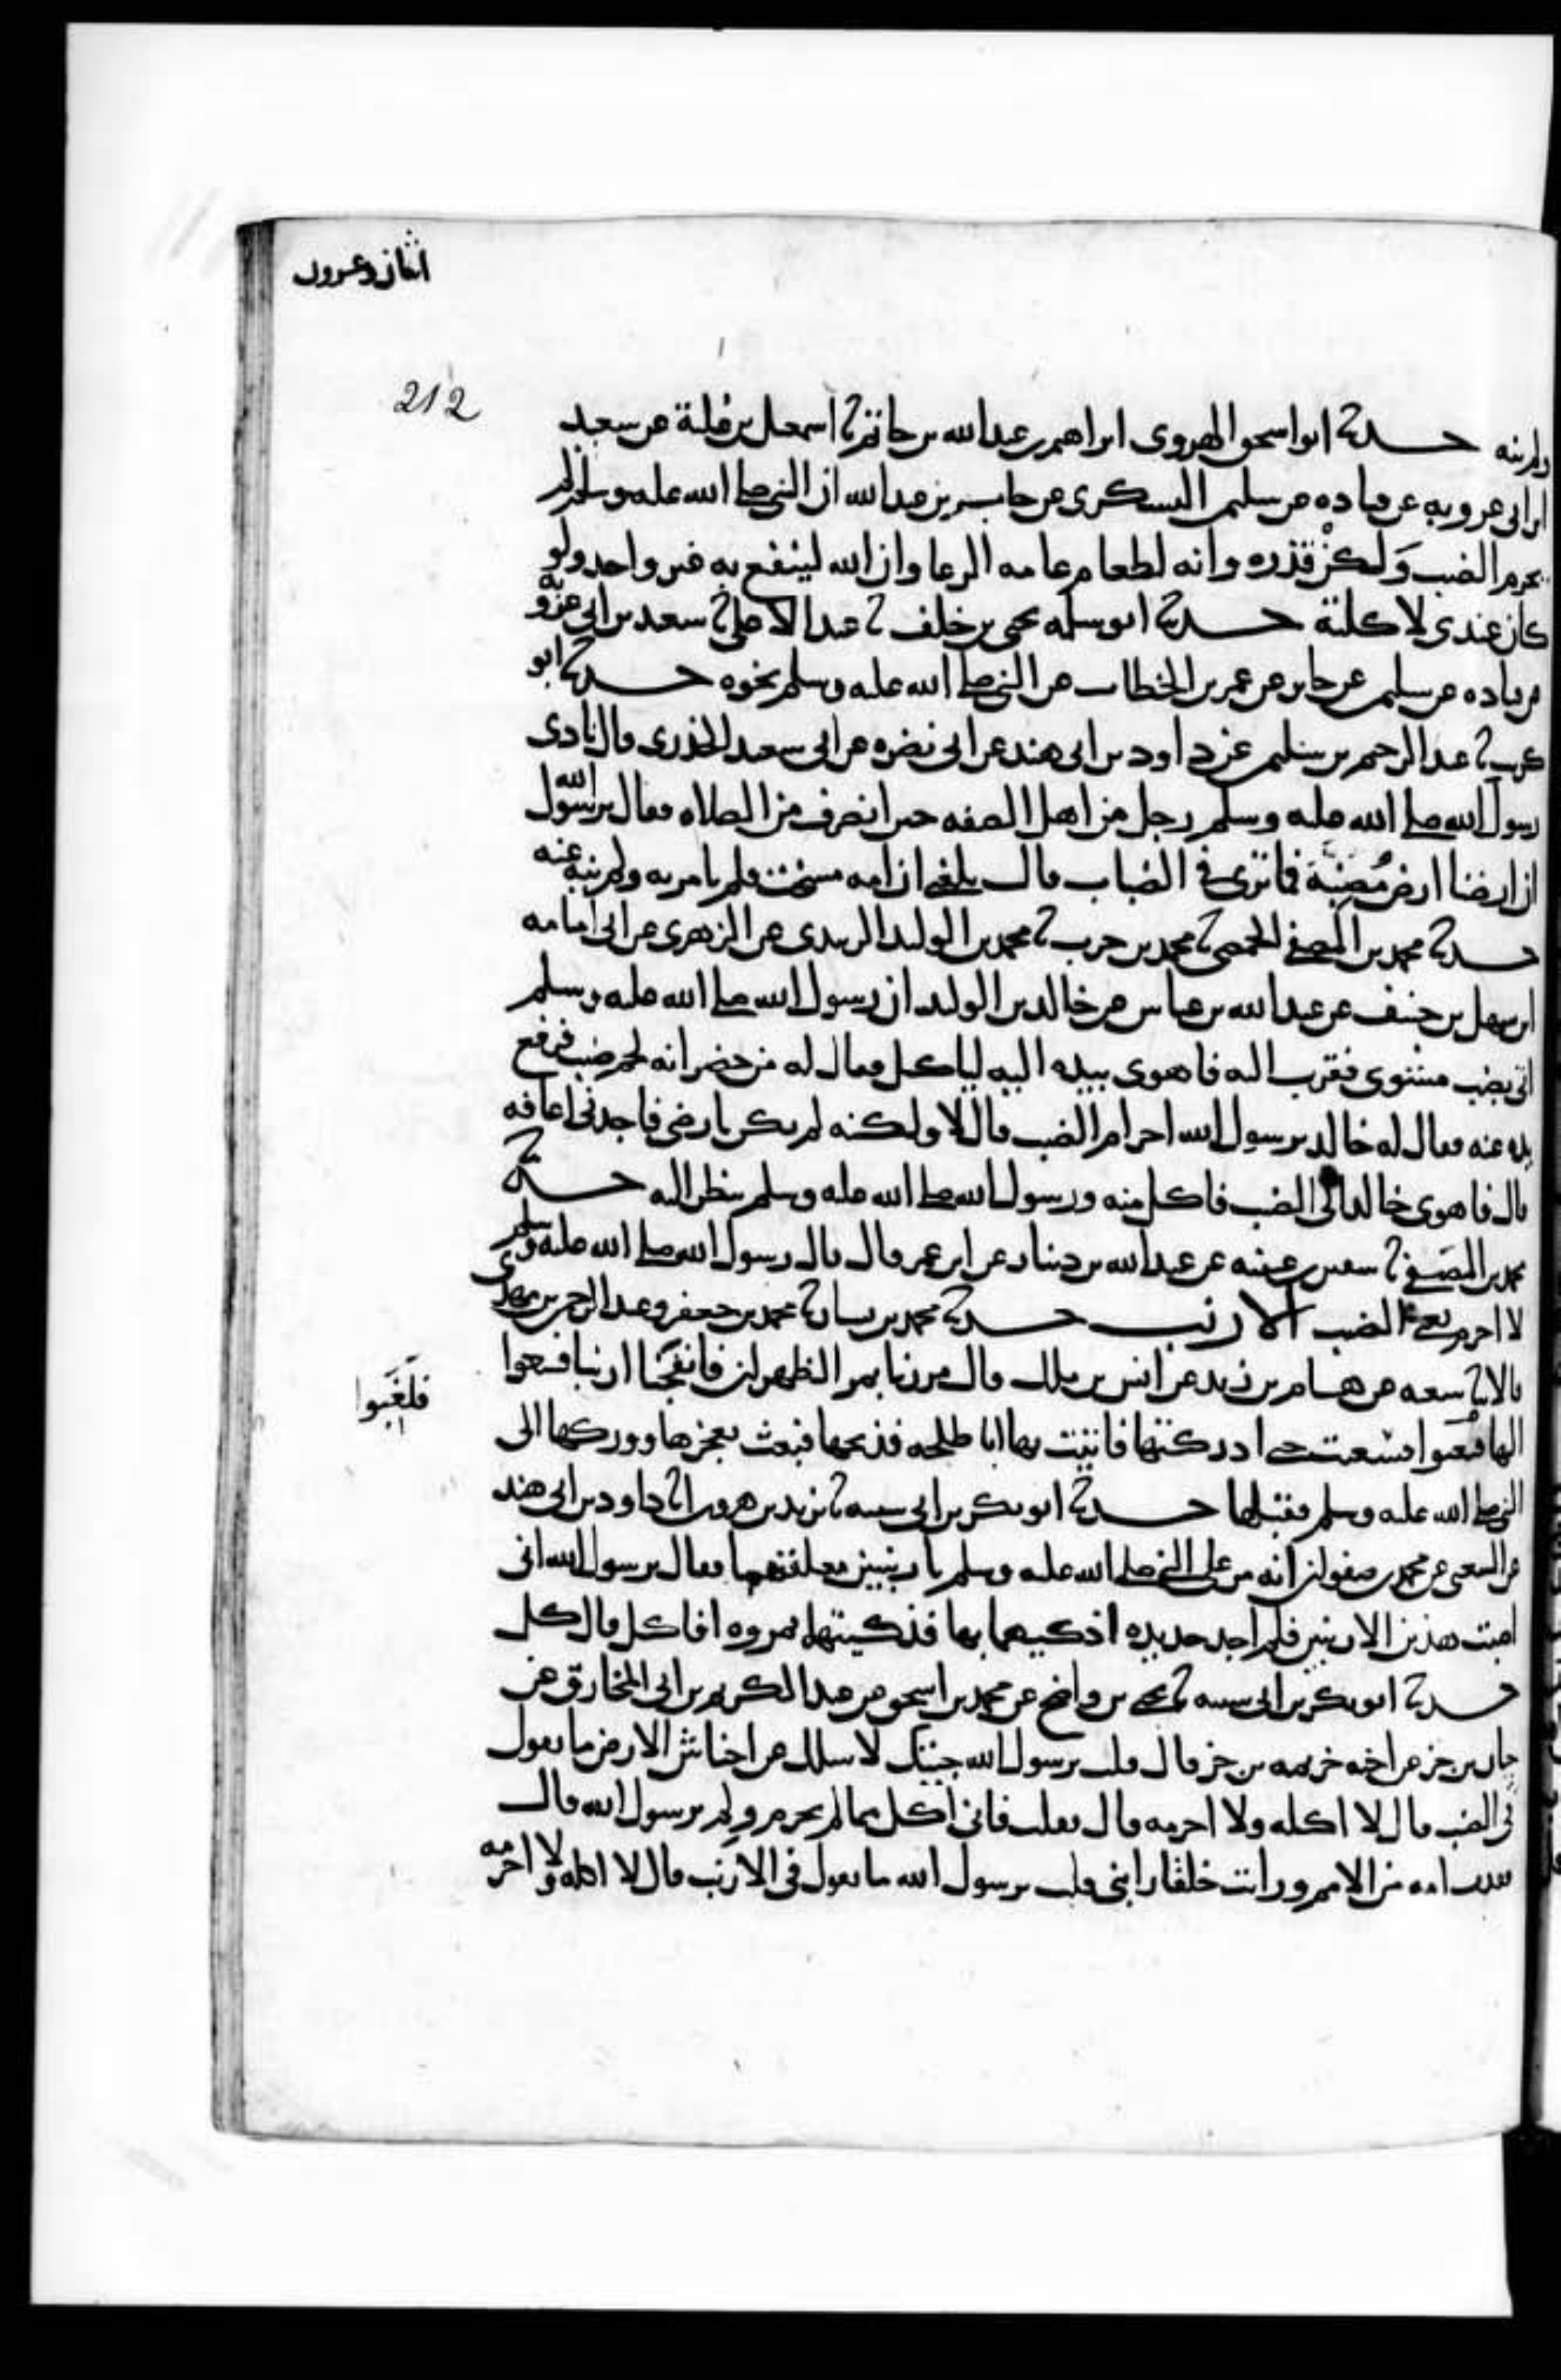 اثنان وعشرون
212
ولم ينه حدثنا ابو اسحق الهروى ابراهيم بن عبد الله بن حاتم ثنا اسمعيل بن علية عن سعيد
ابن ابى عروبه عن قتاده عن سليمن اليشكرى عن جابر بن عبد الله ان النبى صلى الله عليه وسلم لم
يحرم الضب ولكن قذره وانه لطعام عامه الرعا وان الله لينفع به غير واحد ولو
كان عندى لاكلته حدثنا ابو سلمه يحيى بن خلف ثنا عبد الاعلى ثنا سعيد بن ابى عروبه
عن قتاده عن سليمن عن جابر عن عمر بن الخطاب عن النبى صلى الله عليه وسلم نحوه حدثنا ابو
كريب ثنا عبد الرحيم بن سليمن عن داود بن ابى هند عن ابى نضره عن ابى سعيد الخذرى قال نادى
رسول الله صلى الله عليه وسلم رجل من اهل الصفه حين انصرف من الصلاه فقال يرسول الله
ان ارضنا ارض مضبة فما ترى فى الضباب قال بلغنى ان امه مسخت فلم يامر به ولم ينه عنه
حدثنا محمد بن المصفى الحمصى ثنا محمد بن حرب ثنا محمد بن الوليد الزبيدى عن الزهرى عن ابى امامه
ابن سهل بن حنيف عن عبد الله بن عباس عن خالد بن الوليد ان رسول الله صلى الله عليه وسلم
اتى بضب مشوى فقرب اليه فاهوى بيده اليه لياكل فقال له من حضر انه لحم ضب فرفع
يده عنه فقال له خالد يرسول الله احرام الضب قال لا ولكنه لم يكن بارضى فاجدنى اعافه
قال فاهوى خالد الى الضب فاكل منه ورسول الله صلى الله عليه وسلم ينظر اليه حدثنا
محمد بن المصفى ثنا سفين بن عيينه عن عبد الله بن دينار عن ابن عمر قال قال رسول الله صلى الله عليه وسلم
لا احرم يعنى الضب الارنب حدثنا محمد بن بشار ثنا محمد بن جعفر وعبد الرحمن بن مهدى
قالا ثنا شعبه عن هشام بن زيد عن انس بن ملك قال مررنا بمر الظهران فانفجنا ارنبا فسعوا
عليها فلغبوا فسعيت حتى ادركتها فاتيت بها ابا طلحه فذبحها فبعث بعجزها ووركها الى
فلغبوا
النبى صلى الله عليه وسلم فقبلها حدثنا ابو بكر بن ابى شيبه ثنا يزيد بن هرون انا داود بن ابى هند
عن الشعبى عن محمد بن صفوان انه مر على النبى صلى الله عليه وسلم بارنبين معلقهما فقال يرسول الله انى
اصبت هذين الارنبين فلم اجد حديده اذكيهما بها فذكيتهما بمروه افاكل قال كل
حدثنا ابو بكر بن ابى شيبه ثنا يحيى بن واضح عن محمد بن اسحق عن عبد الكريم بن ابى المخارق عن
حبان بن جز عن اخيه خزيمه بن جز قال قلت يرسول الله جئتك لاسلك عن احناش الارض ما تقول
فى الضب قال لا اكله ولا احرمه قال فقلت فانى اكل مما لم يحرم ولم يرسول الله قال
فقدت امه من الامم ورايت خلقا رابنى قلت يرسول الله ما تقول فى الارنب قال لا اكله ولا احرمه